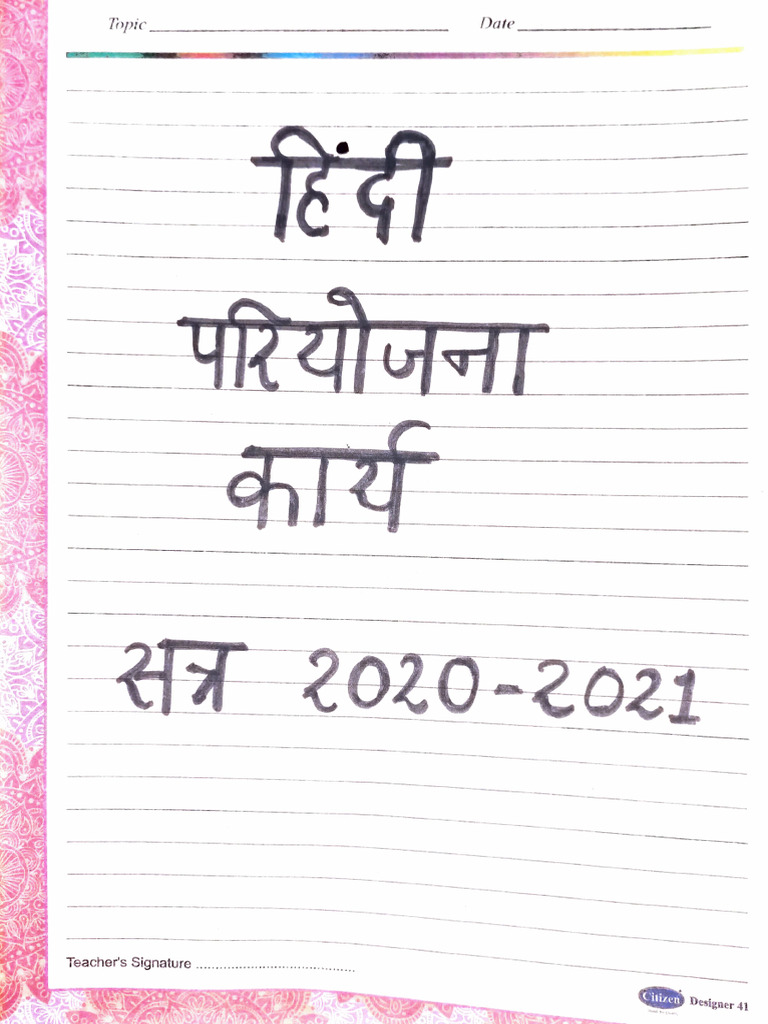 Topic Date
हिंदी
परियोजना
कार्य
सत्र 2020-2021
Teacher's Signature
Citizen Designer 41